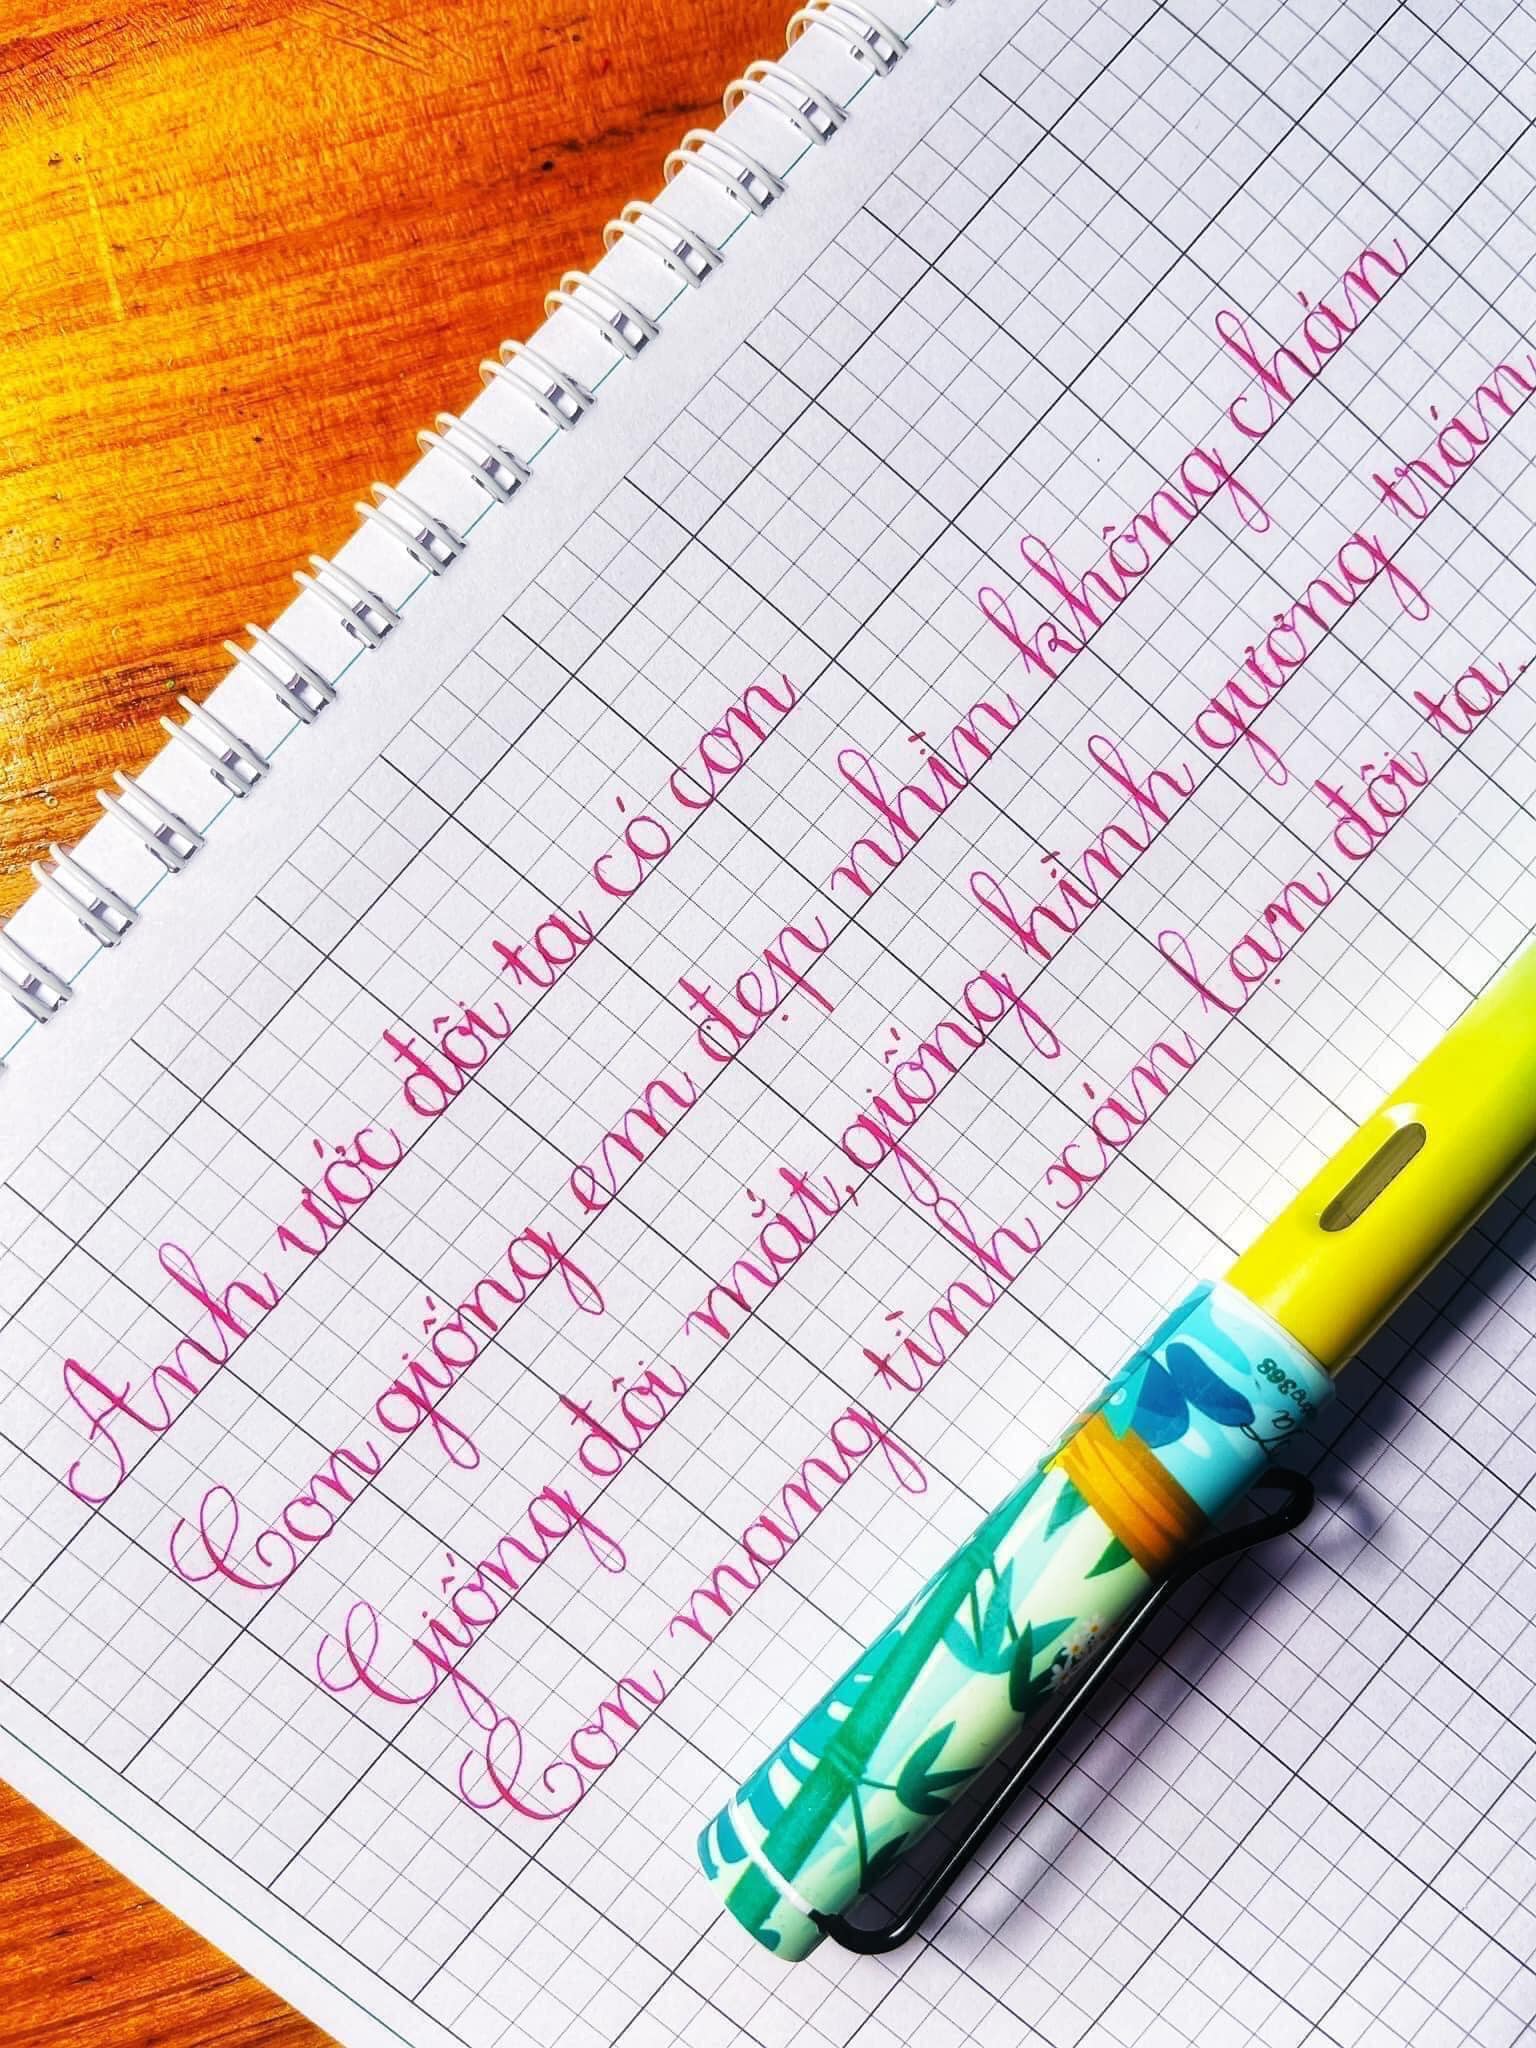 Anh ước đôi ta có con
Con giống em đẹp nhìn không chán
Giống đôi mắt, giống hình gương trán
Con mang tình xán lạn đôi ta.